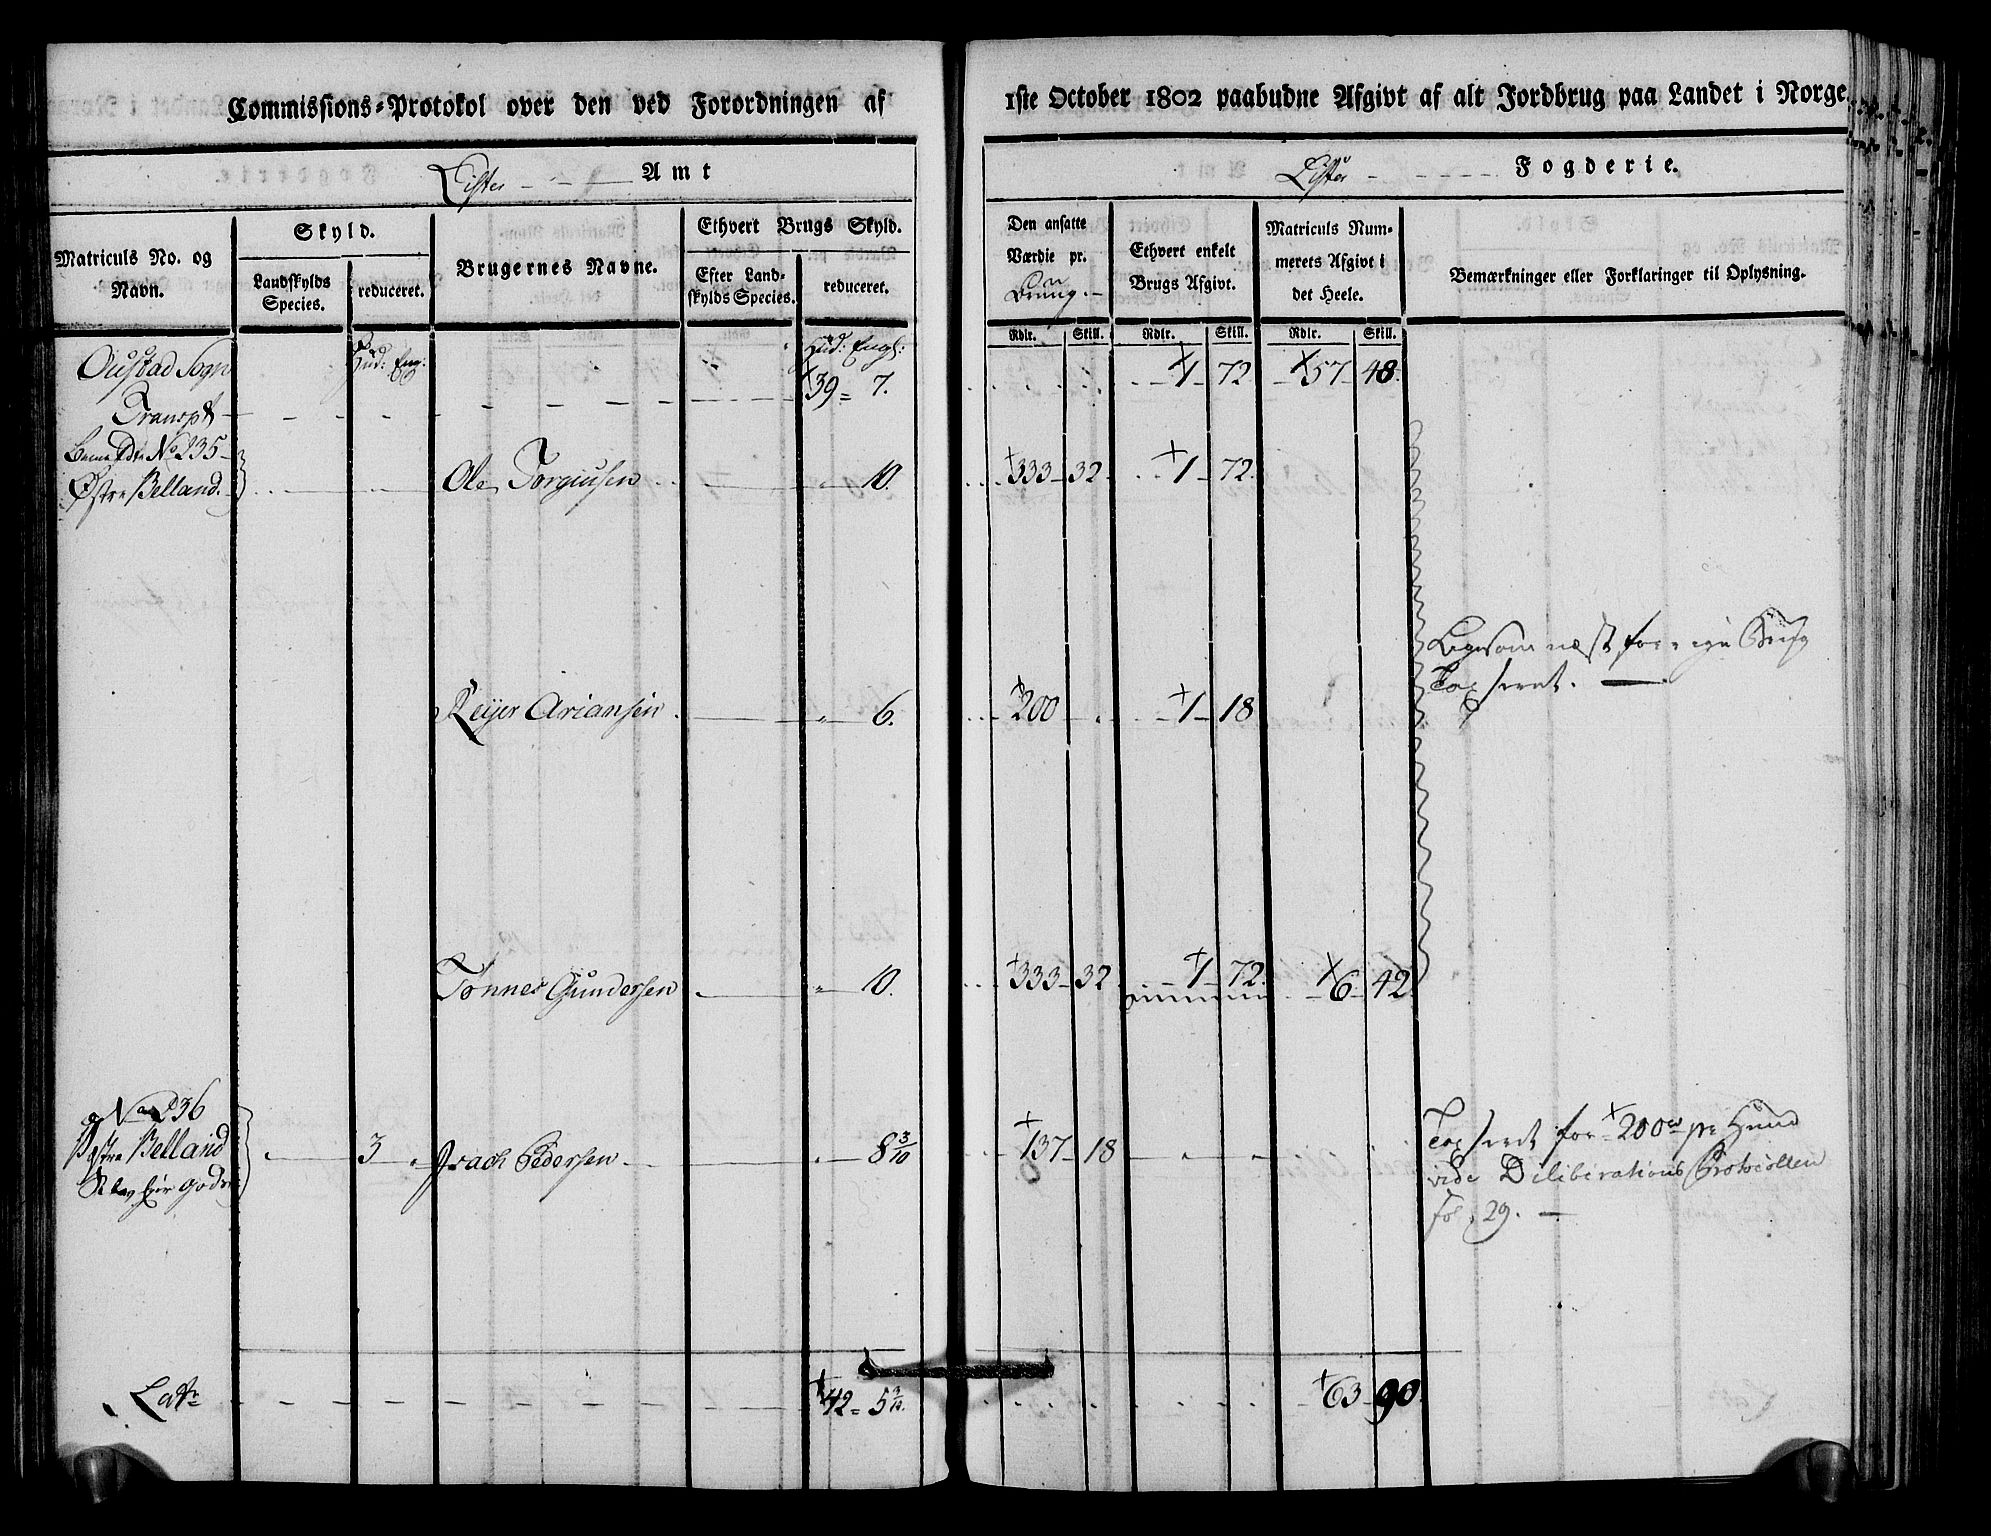 Commissions-Protokol over den ved Forordningen af 1ste October 1802 paabudne Afgivt af alt Jordbrug paa Landet i Norge
Lister Amt
Lister Fogderie.
Matriculs No. og Navn.
Skyld.
Landskylds Species.
reduceret.
Brugernes Navne.
Ethvert Brugs Skyld.
Efter Landskylds Species.
reduceret.
Den ansatte Værdie pr. Bruug.
Ethvert enkelt Brugs Afgivt.
Matriculs Nummerets Afgivt i det Heele.
Bemærkninger eller Forklaringer til Oplysning.
Rdlr. Skill. Rdlr. Skill. Rdlr. Skill.
Hud: Eng: Hud: Engl:
Oustad Sogn
Transpt 39 = 7. 1 72 57 48.
No 235
Østre Belland. Ole Torgiusen 10. 333 32 1 72
Ligesom næst forrige Brug
Taxseret.
Reijer Ariansen 6. 200 1 18
Tønnes Gundersen 10. 333 32 1 72. 6 42
No 236
Belland 3 Isach Pedersen 8 3/10 137 18
Taxseret for 200 rd pr Huud
vide Deliberations Protocollen
fol. 29.
Lat. 42 = 5 3/10. 63 90.